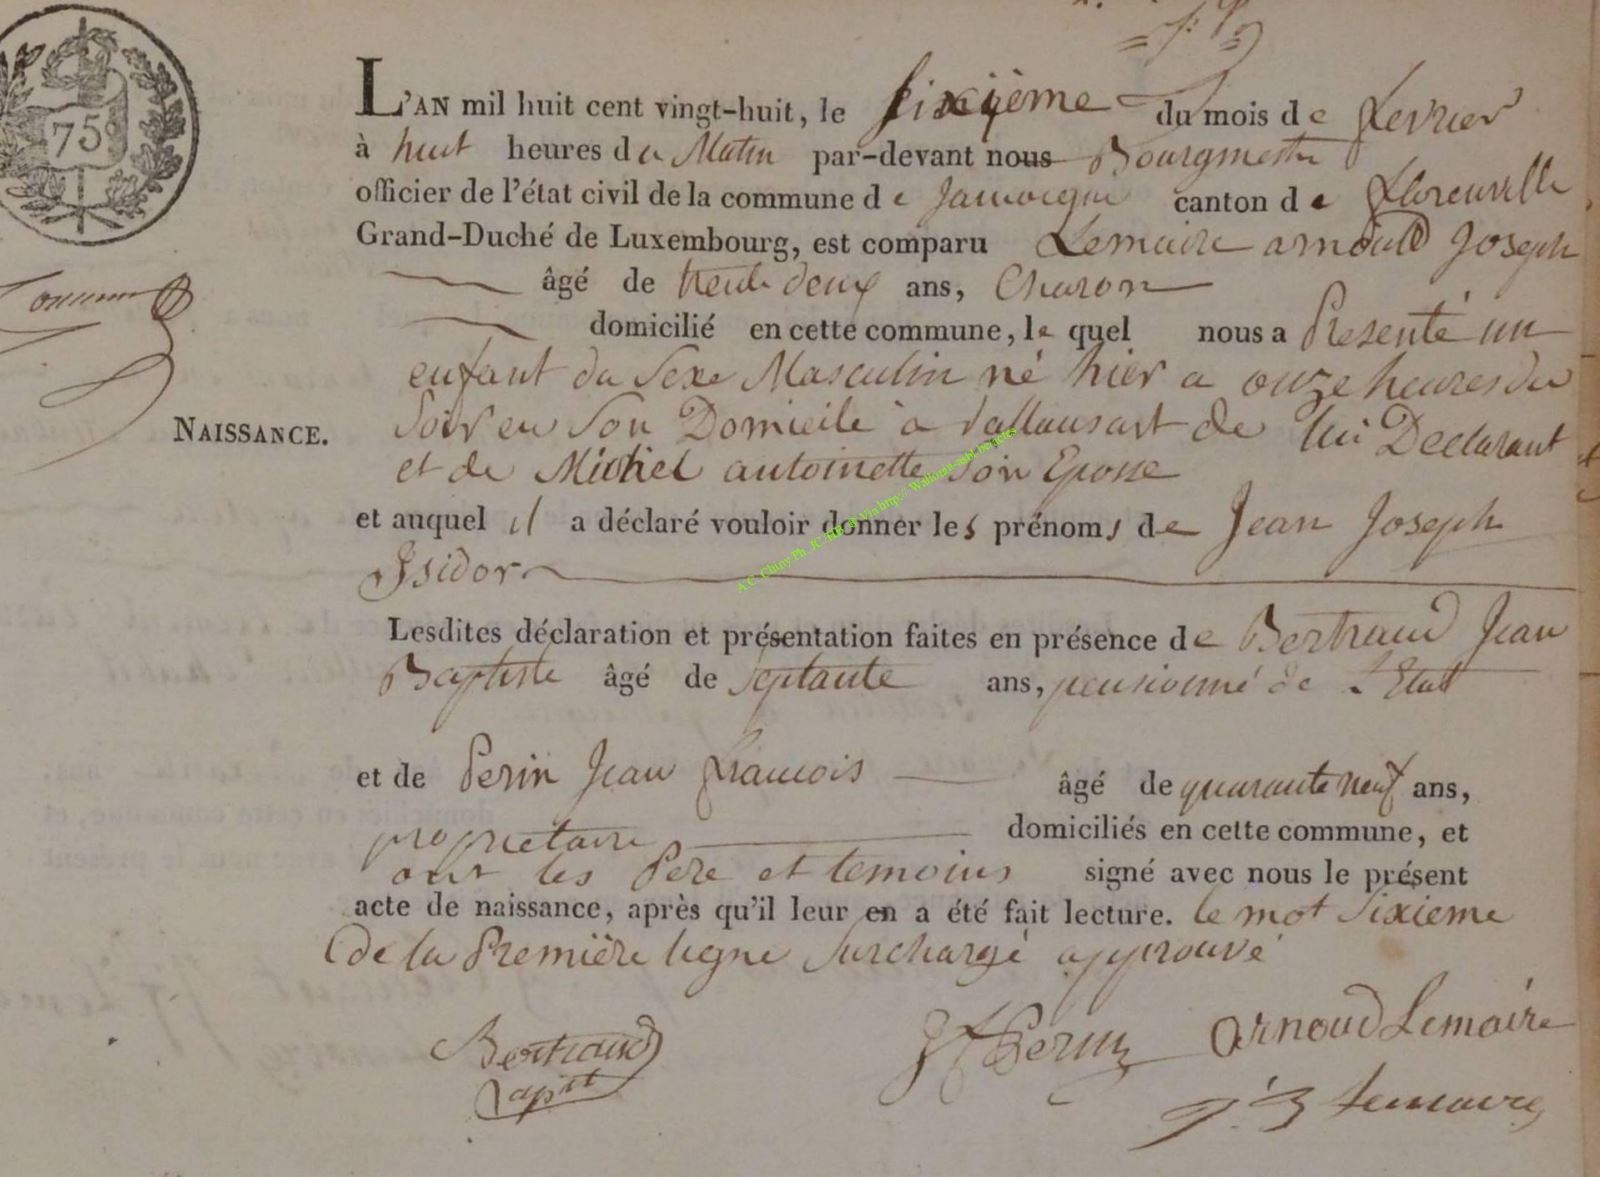 75
L'AN mil huit cent vingt-huit, le sixieme du mois de fevrier
à huit heures du Matin par-devant nous Bourgmestre
officier de l'état civil de la commune de Jamoigne canton de florenville
Grand-Duché de Luxembourg, est comparu Lemaire arnould Joseph
âgé de trente deux ans, Charon
domicilié en cette commune, le quel nous a Presenté un
enfant du Sexe Masculin né hier a onze heures du
Soir en Son Domicile à Vallansart de lui Declarant
et de Michel antoinette son Epouse
et auquel il a déclaré vouloir donner les prénoms de Jean Joseph
Isidor
A.C. Chiny Ph. Via http://
Lesdites déclaration et présentation faites en présence de Bertrand Jean
Baptiste âgé de Septante ans, pensionné de l'Etat
et de Perin Jean francois âgé de quarante neuf ans,
propriétaire domiciliés en cette commune, et
ont les Pere et temoins signé avec nous le présent
acte de naissance, après qu'il leur en a été fait lecture. le mot Sixieme
de la Première ligne Surchargé approuvé
NAISSANCE.
Bertrand
Perin arnoud Lemaire
capit
Lemaire